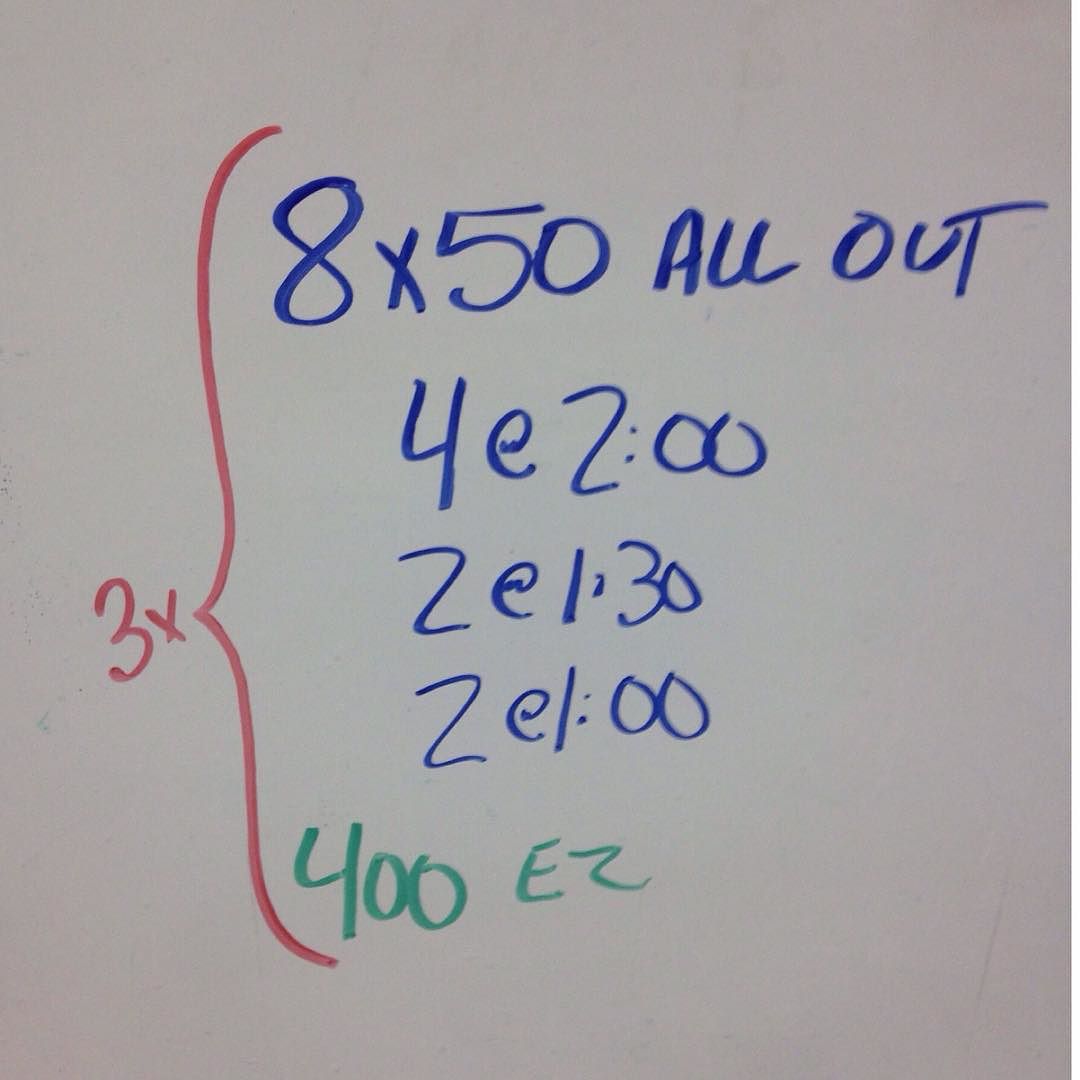 8x50 ALL OUT
4@2:00
2@1:30
3x
2@1:00
400 EZ